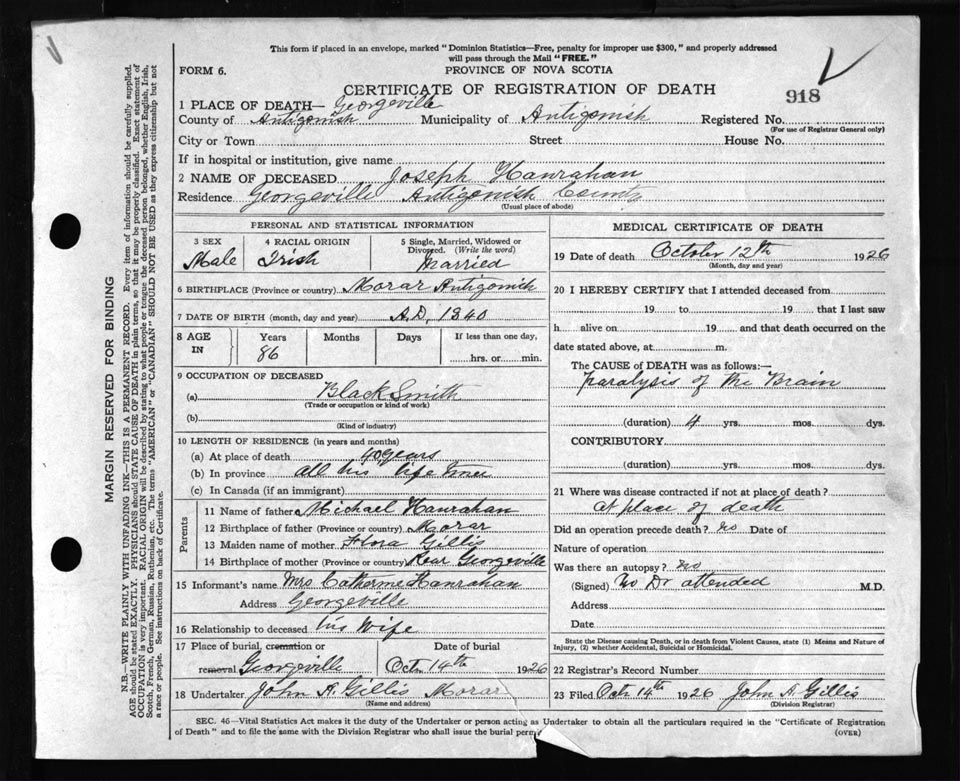 This form if placed in an envelope, marked "Dominion Statistics—Free, penalty for improper use $300," and properly addressed
will pass through the Mail "FREE."
FORM 6.
PROVINCE OF NOVA SCOTIA
CERTIFICATE OF REGISTRATION OF DEATH
918
1 PLACE OF DEATH— Georgeville
County of Antigonish Municipality of Antigonish Registered No.
(For use of Registrar General only)
City or Town Street House No.
If in hospital or institution, give name
2 NAME OF DECEASED Joseph Hanrahan
Residence Georgeville Antigonish County
(Usual place of abode)
PERSONAL AND STATISTICAL INFORMATION
3 SEX 4 RACIAL ORIGIN 5 Single, Married, Widowed or
Divorced. (Write the word)
Male Irish Married
6 BIRTHPLACE (Province or country) Morar Antigonish
7 DATE OF BIRTH (month, day and year) A.D. 1840
8 AGE IN Years Months Days If less than one day,
86 hrs. or min.
9 OCCUPATION OF DECEASED
(a) BlackSmith
(Trade or occupation or kind of work)
(b)
(Kind of industry)
10 LENGTH OF RESIDENCE (in years and months)
(a) At place of death 40 years
(b) In province all his life time
(c) In Canada (if an immigrant)
Parents
11 Name of father Michael Hanrahan
12 Birthplace of father (Province or country) Morar
13 Maiden name of mother Flora Gillis
14 Birthplace of mother (Province or country) Rear Georgeville
15 Informant's name Mrs Catherine Hanrahan
Address Georgeville
16 Relationship to deceased his Wife
17 Place of burial, cremation or Date of burial
removal Georgeville Oct. 14th 1926
18 Undertaker John A. Gillis Morar
(Name and address)
MEDICAL CERTIFICATE OF DEATH
19 Date of death October 12th 1926
(Month, day and year)
20 I HEREBY CERTIFY that I attended deceased from
19 to 19 that I last saw
h alive on 19 and that death occurred on the
date stated above, at m.
The CAUSE OF DEATH was as follows:—
Paralysis of the Brain
(duration) 4 yrs. mos. dys.
CONTRIBUTORY
(duration) yrs. mos. dys.
21 Where was disease contracted if not at place of death?
at place of death
Did an operation precede death? No Date of
Nature of operation
Was there an autopsy? No
(Signed) No Dr attended M.D.
Address
Date
State the Disease causing Death, or in death from Violent Causes, state (1) Means and Nature of
Injury, (2) whether Accidental, Suicidal or Homicidal.
22 Registrar's Record Number
23 Filed Oct. 14th 1926 John A. Gillis
(Division Registrar)
SEC. 46—Vital Statistics Act makes it the duty of the Undertaker or person acting as Undertaker to obtain all the particulars required in the "Certificate of Registration
of Death" and to file the same with the Division Registrar who shall issue the burial
(OVER)
MARGIN RESERVED FOR BINDING
N.B.—WRITE PLAINLY WITH UNFADING INK—THIS IS A PERMANENT RECORD. Every item of information should be carefully supplied.
AGE should be stated EXACTLY. PHYSICIANS should STATE CAUSE OF DEATH in plain terms, so that it may be properly classified. Exact statement of
OCCUPATION is very important. RACIAL ORIGIN will be described by stating to what people or tongue the deceased person belonged, whether English, Irish,
Scotch, French, German, Russian, Ruthenian, etc. The terms "AMERICAN" or "CANADIAN" SHOULD NOT BE USED as they express citizenship but not
a race or people. See instructions on back of Certificate.